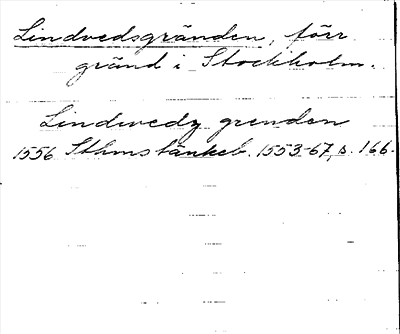 Lindvedsgränden, förr
gränd i Stockholm.
Lindwedz grenden
1556 Sthms tänkeb. 1553-67, s. 166.